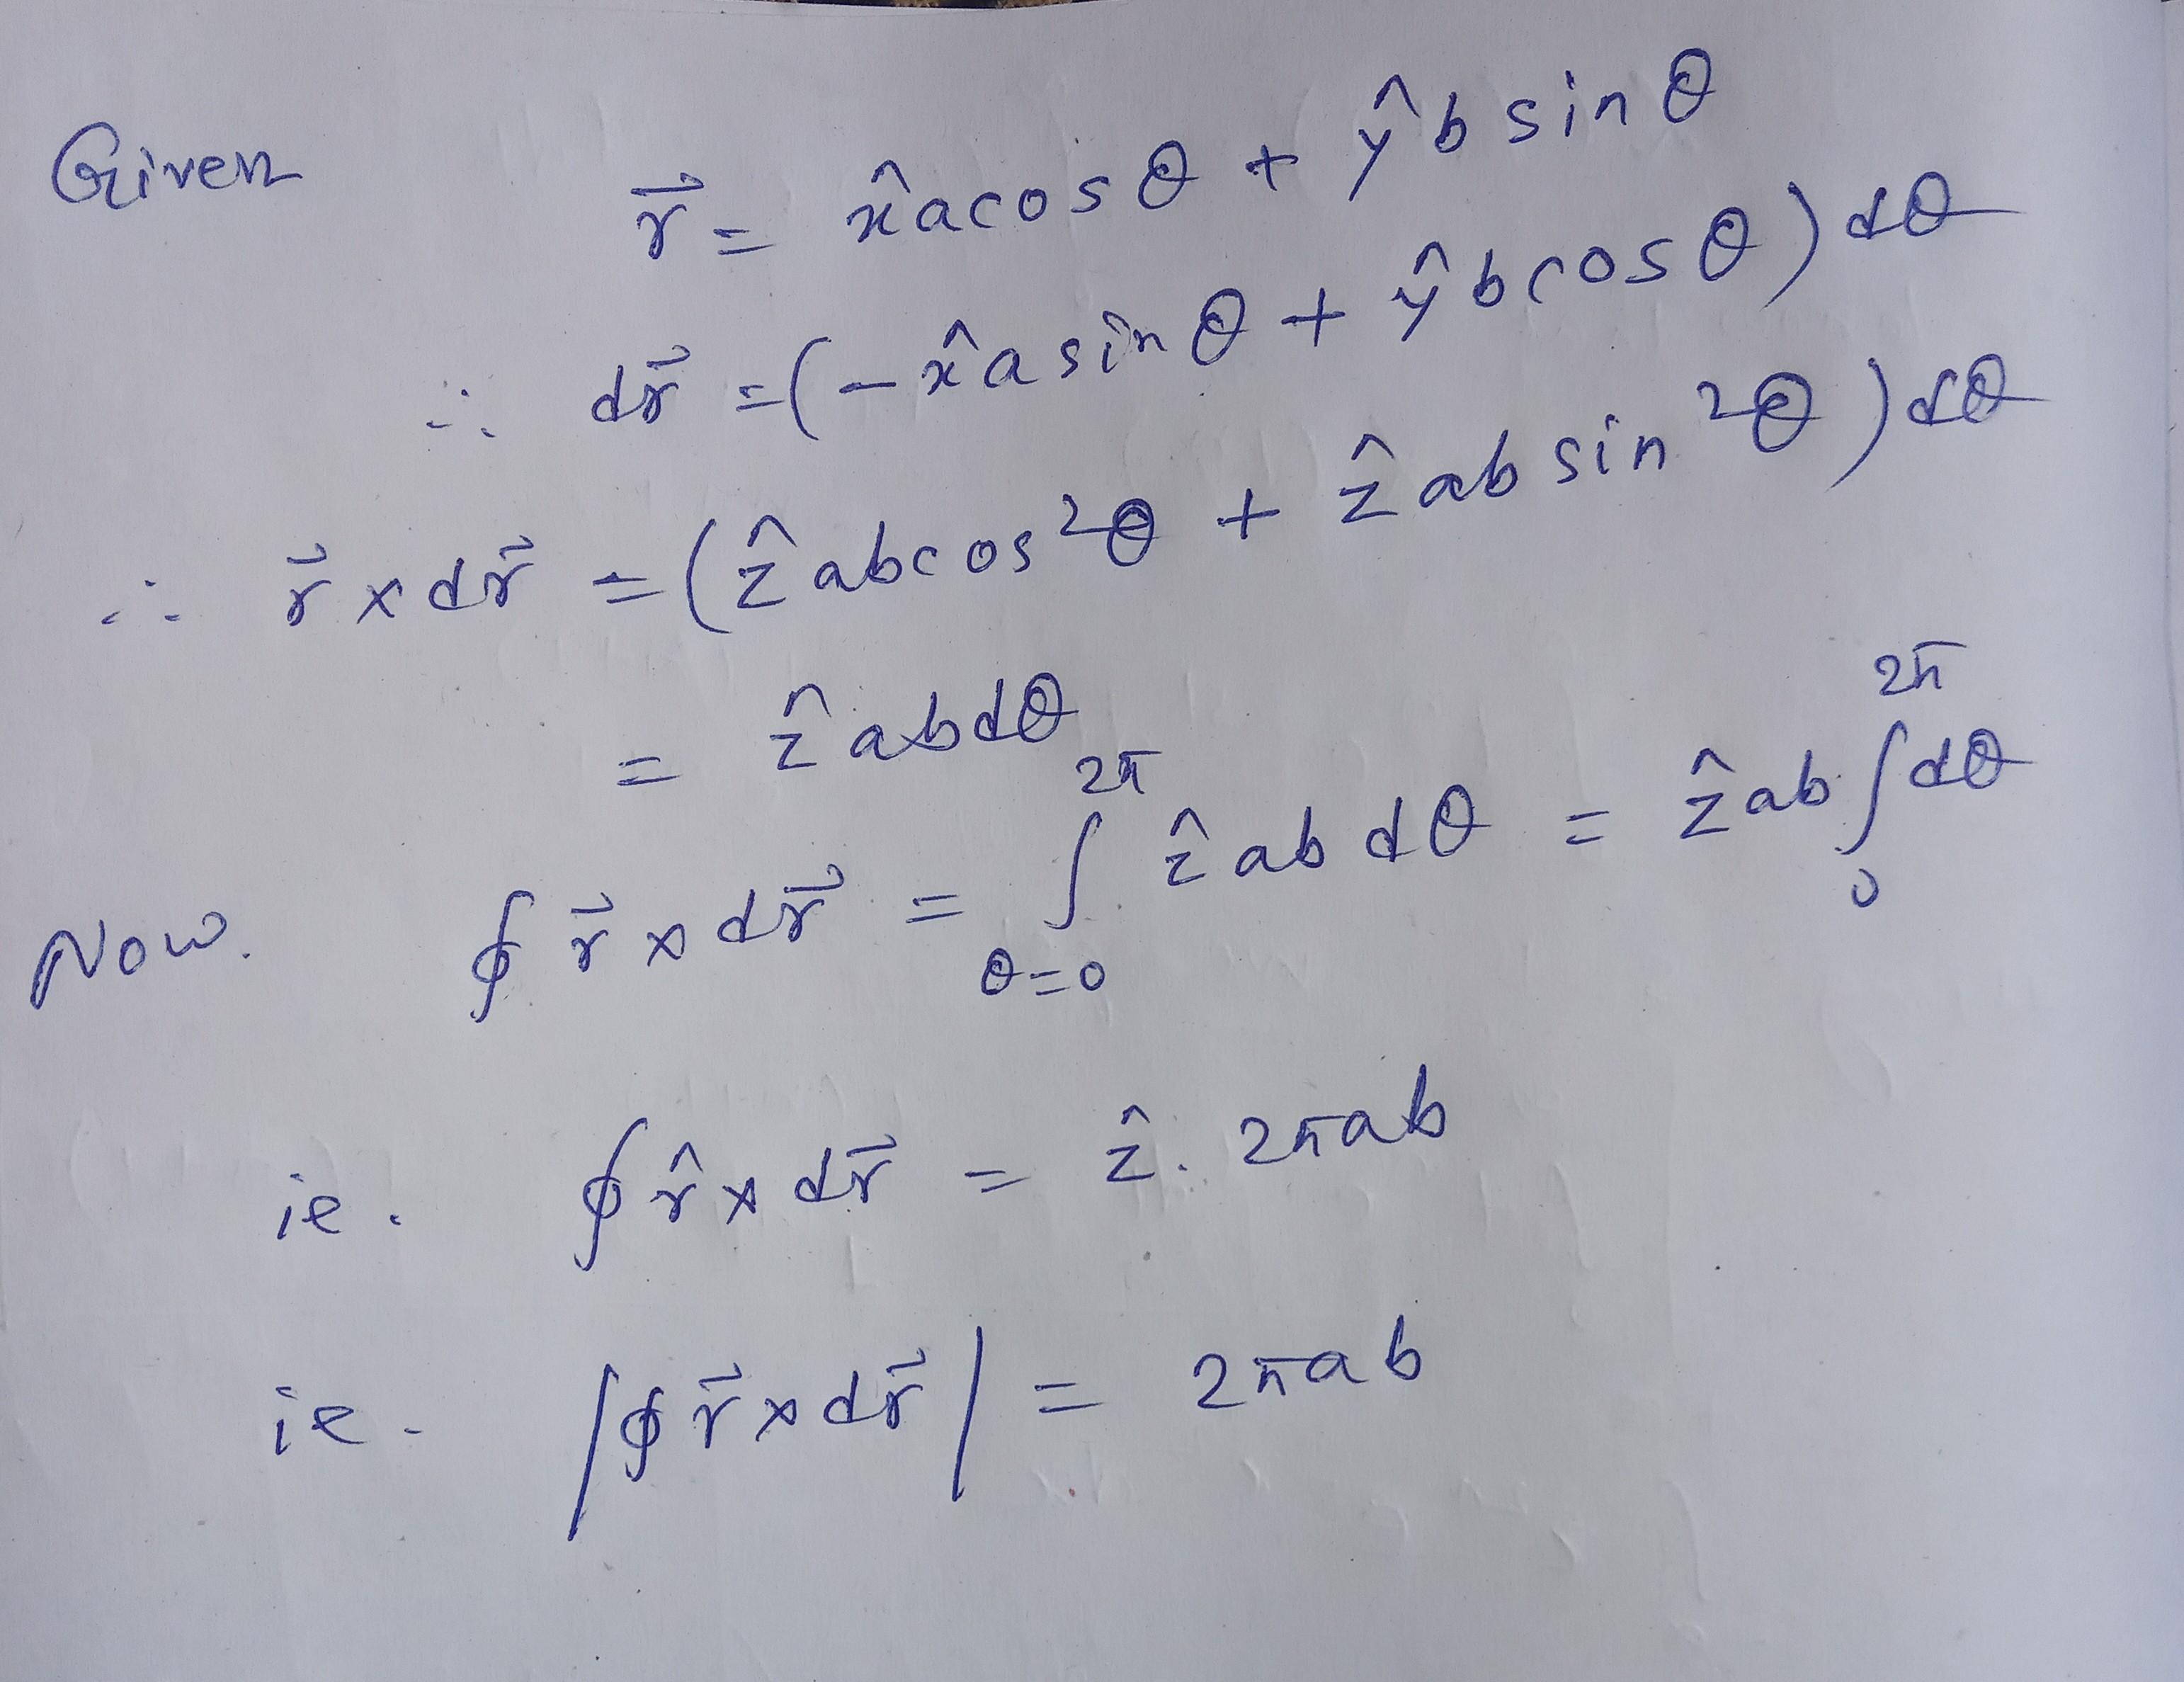 Given r⃗ = x̂ a cos θ + ŷ b sin θ
∴ dr⃗ = (− x̂ a sin θ + ŷ b cos θ) dθ
∴ r⃗ × dr⃗ = (ẑ ab cos²θ + ẑ ab sin²θ) dθ
= ẑ ab dθ
Now. ∮ r⃗ × dr⃗ = ∫_{θ=0}^{2π} ẑ ab dθ = ẑ ab ∫_0^{2π} dθ
ie. ∮ r̂ × dr⃗ = ẑ. 2πab
ie. |∮ r⃗ × dr⃗| = 2πab